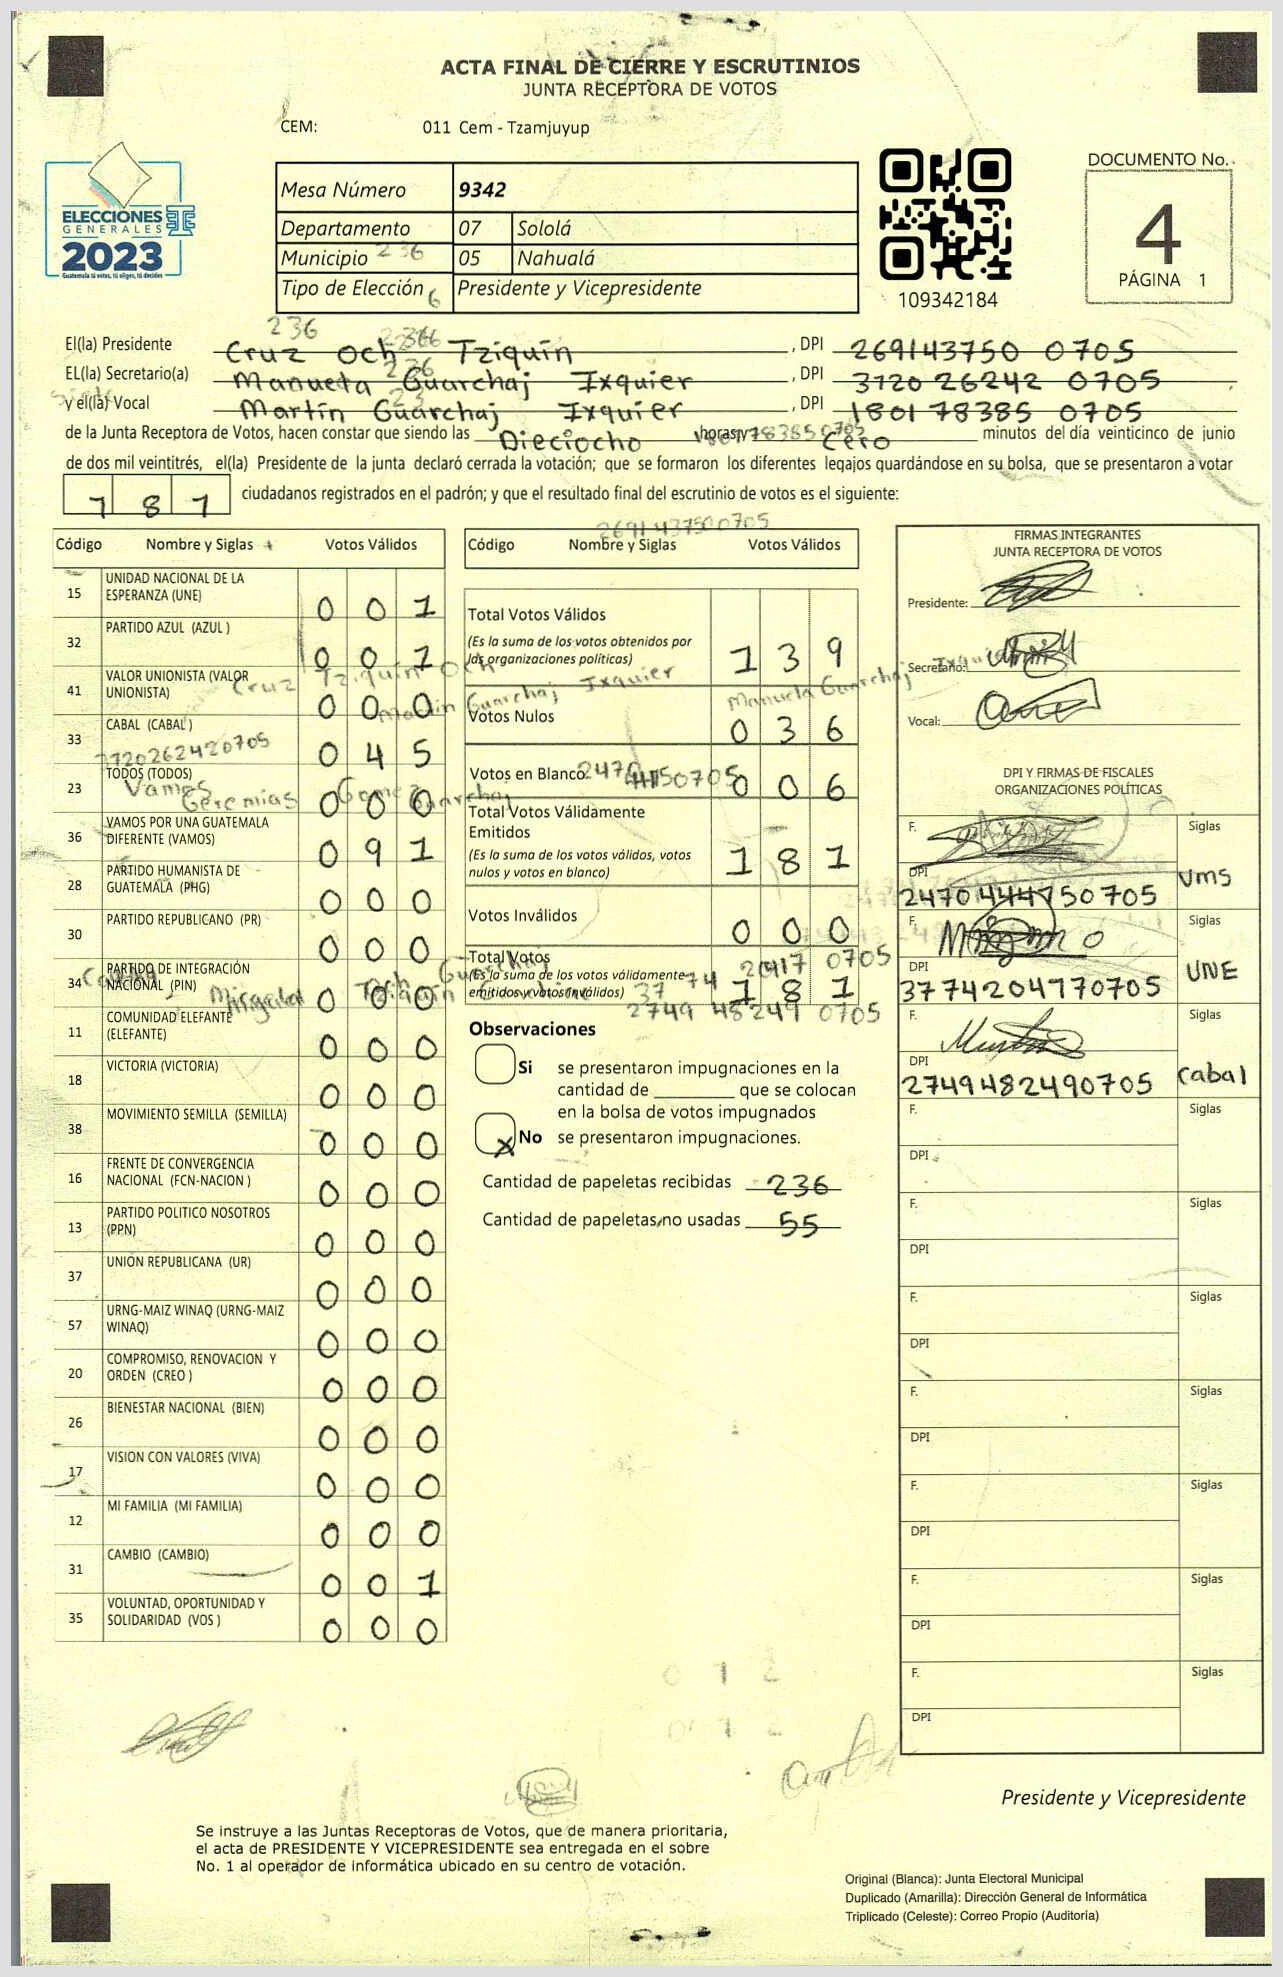 ACTA FINAL DE CIERRE Y ESCRUTINIOS
JUNTA RECEPTORA DE VOTOS
CEM: 011 Cem - Tzamjuyup
ELECCIONES
GENERALES
2023
Guatemala tú votas, tú eliges, tú decides
Mesa Número 9342
Departamento 07 Sololá
Municipio 236 05 Nahualá
Tipo de Elección 6 Presidente y Vicepresidente
109342184
DOCUMENTO No.
4
PÁGINA 1
236
El(la) Presidente Cruz Och Tziquin , DPI 269143750 0705
EL(la) Secretario(a) Manuela Guarchaj Ixquier , DPI 3720 26242 0705
y el(la) Vocal Martín Guarchaj Ixquier , DPI 1801 78385 0705
de la Junta Receptora de Votos, hacen constar que siendo las Dieciocho horas y Cero minutos del día veinticinco de junio
de dos mil veintitrés, el(la) Presidente de la junta declaró cerrada la votación; que se formaron los diferentes legajos guardándose en su bolsa, que se presentaron a votar
181 ciudadanos registrados en el padrón; y que el resultado final del escrutinio de votos es el siguiente:
2691437500705
Código Nombre y Siglas Votos Válidos
15 UNIDAD NACIONAL DE LA ESPERANZA (UNE) 0 0 1
32 PARTIDO AZUL (AZUL ) 0 0 1
41 VALOR UNIONISTA (VALOR UNIONISTA) 0 0 0
33 CABAL (CABAL ) 0 4 5
3720262420705
23 TODOS (TODOS) 0 0 0
Vamos Geremias Gomez Guarchaj
36 VAMOS POR UNA GUATEMALA DIFERENTE (VAMOS) 0 9 1
28 PARTIDO HUMANISTA DE GUATEMALA (PHG) 0 0 0
30 PARTIDO REPUBLICANO (PR) 0 0 0
34 PARTIDO DE INTEGRACIÓN NACIONAL (PIN) 0 0 0
11 COMUNIDAD ELEFANTE (ELEFANTE) 0 0 0
18 VICTORIA (VICTORIA) 0 0 0
38 MOVIMIENTO SEMILLA (SEMILLA) 0 0 0
16 FRENTE DE CONVERGENCIA NACIONAL (FCN-NACION ) 0 0 0
13 PARTIDO POLITICO NOSOTROS (PPN) 0 0 0
37 UNION REPUBLICANA (UR) 0 0 0
57 URNG-MAIZ WINAQ (URNG-MAIZ WINAQ) 0 0 0
20 COMPROMISO, RENOVACION Y ORDEN (CREO ) 0 0 0
26 BIENESTAR NACIONAL (BIEN) 0 0 0
17 VISION CON VALORES (VIVA) 0 0 0
12 MI FAMILIA (MI FAMILIA) 0 0 0
31 CAMBIO (CAMBIO) 0 0 1
35 VOLUNTAD, OPORTUNIDAD Y SOLIDARIDAD (VOS ) 0 0 0
Código Nombre y Siglas Votos Válidos
Total Votos Válidos
(Es la suma de los votos obtenidos por las organizaciones políticas) 1 3 9
Cruz Tziquin Och
Martín Guarchaj Ixquier
Manuela Guarchaj Ixquier
Votos Nulos 0 3 6
Votos en Blanco 0 0 6
Total Votos Válidamente Emitidos
(Es la suma de los votos válidos, votos nulos y votos en blanco) 1 8 1
Votos Inválidos 0 0 0
Total Votos
(Es la suma de los votos válidamente emitidos y votos inválidos) 1 8 1
37 74 20417 0705
2749 48249 0705
Observaciones
Si se presentaron impugnaciones en la
cantidad de ________ que se colocan
en la bolsa de votos impugnados
X No se presentaron impugnaciones.
Cantidad de papeletas recibidas 236
Cantidad de papeletas no usadas 55
FIRMAS INTEGRANTES
JUNTA RECEPTORA DE VOTOS
Presidente:
Secretario:
Vocal:
DPI Y FIRMAS DE FISCALES
ORGANIZACIONES POLÍTICAS
F. Siglas
DPI 2470444750705 Vms
F. Siglas
DPI 3774204770705 UNE
F. Siglas
DPI 2749482490705 Cabal
F. Siglas
DPI
F. Siglas
DPI
F. Siglas
DPI
F. Siglas
DPI
F. Siglas
DPI
F. Siglas
DPI
F. Siglas
DPI
0 1 2
0 1 2
Presidente y Vicepresidente
Se instruye a las Juntas Receptoras de Votos, que de manera prioritaria,
el acta de PRESIDENTE Y VICEPRESIDENTE sea entregada en el sobre
No. 1 al operador de informática ubicado en su centro de votación.
Original (Blanca): Junta Electoral Municipal
Duplicado (Amarilla): Dirección General de Informática
Triplicado (Celeste): Correo Propio (Auditoría)